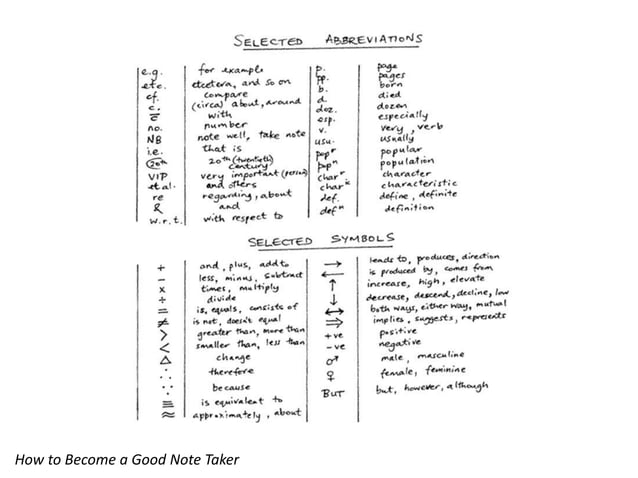 SELECTED ABBREVIATIONS
e.g. for example
etc. etcetera, and so on
cf. compare
c. (circa) about, around
c̄ with
no. number
NB note well, take note
i.e. that is
20th 20th (twentieth) century
VIP very important (person)
et al. and others
re regarding, about
& and
w.r.t. with respect to
p. page
pp. pages
b. born
d. died
doz. dozen
esp. especially
v. very, verb
usu. usually
popr popular
popn population
charr character
charic characteristic
def. define, definite
defn definition
SELECTED SYMBOLS
+ and, plus, add to
− less, minus, subtract
x times, multiply
÷ divide
= is, equals, consists of
≠ is not, doesn't equal
> greater than, more than
< smaller than, less than
Δ change
∴ therefore
∵ because
≡ is equivalent to
≈ approximately, about
→ leads to, produces, direction
← is produced by, comes from
↑ increase, high, elevate
↓ decrease, descend, decline, low
↔ both ways, either way, mutual
⇒ implies, suggests, represents
+ve positive
−ve negative
♂ male, masculine
♀ female, feminine
BUT but, however, although
How to Become a Good Note Taker